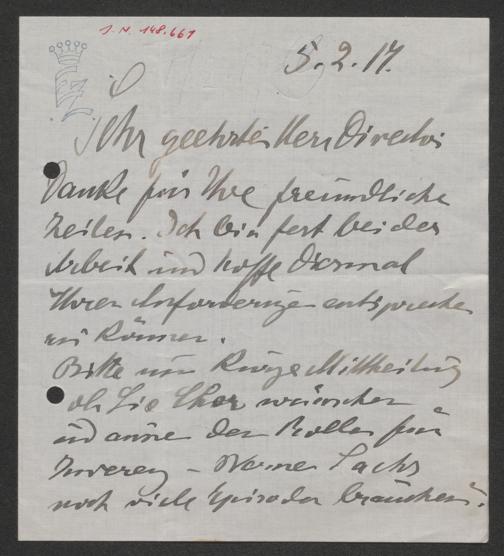 J. N. 148.661
5.2.17.
Sehr geehrter Herr Director
Danke für Ihre freundliche
Zeilen. Ich bin fest bei der
Arbeit und hoffe diesmal
Ihren Anforderungen entsprechen
zu können.
Bitte um kurze Mittheilung
ob Sie Chor wünschen
und ausser den Rollen für
– Werner Sachs
noch viele Episoden brauchen.